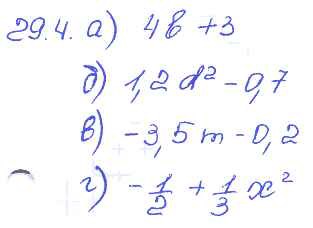 29.4. а) 4в + 3
б) 1,2 d² - 0,7
в) - 3,5 m - 0,2
г) - 1/2 + 1/3 x²